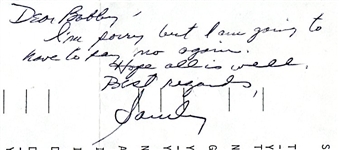 Dear Bobby,
I'm sorry but I am going to
have to say no again.
Hope all is well.
Best regards,
Sandy